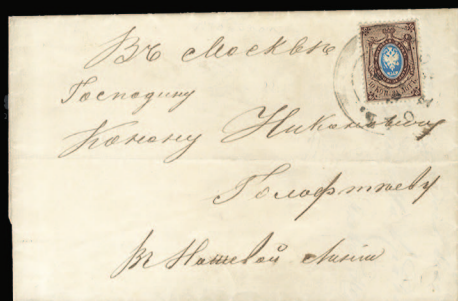 Въ Москвѣ
Господину
Конону Никоновичу
Голофтѣеву
въ Ножевой Линіи